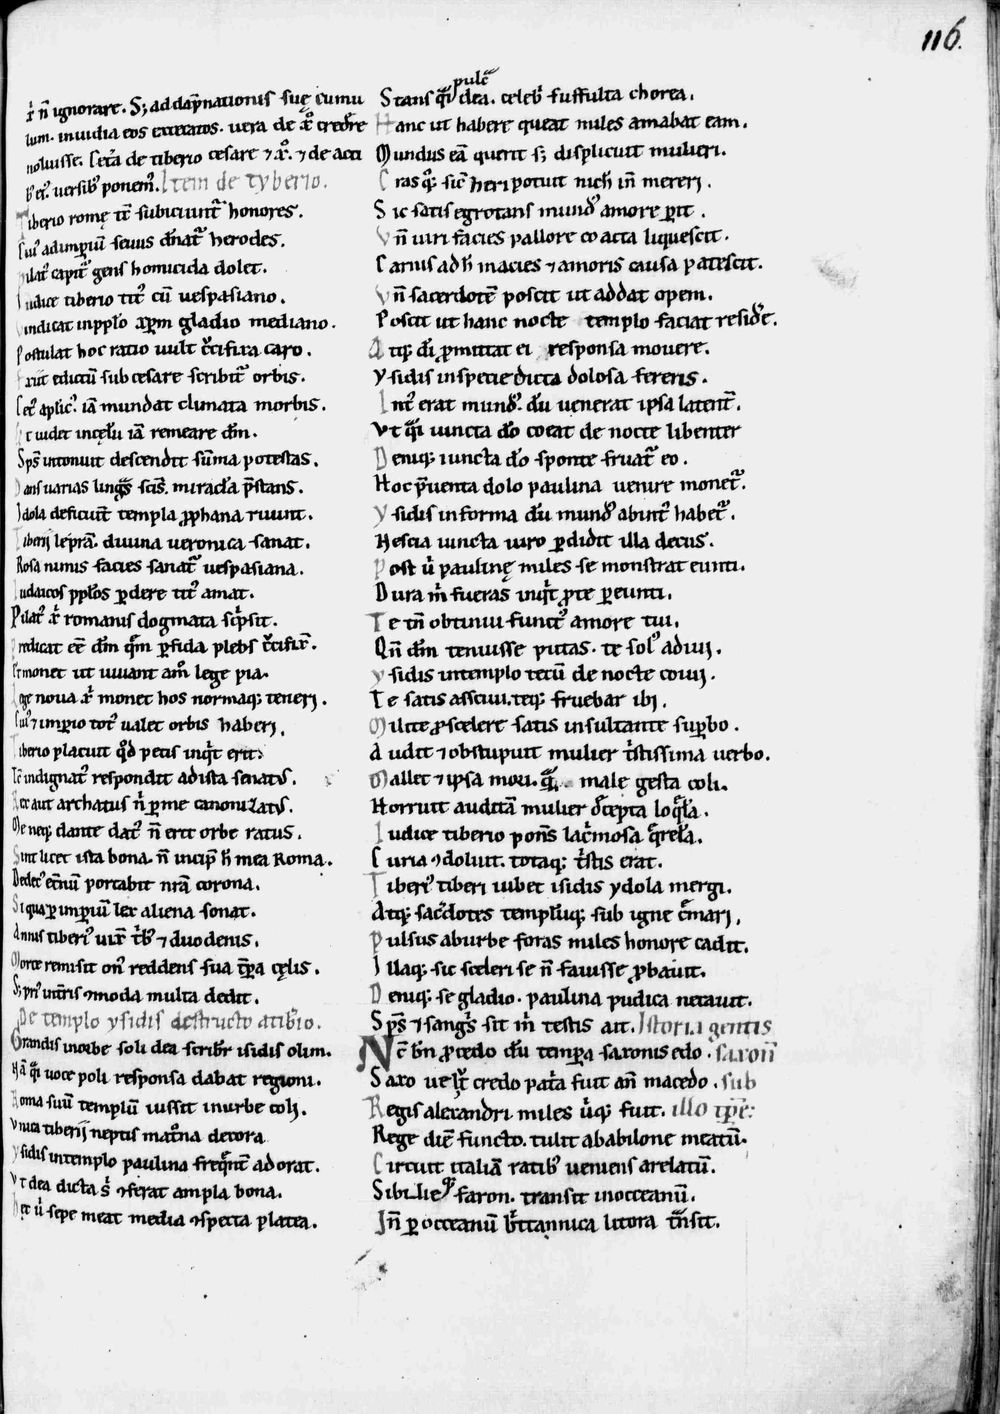 116.
xp̄ n̄ ignorare. S; ad dāpnationis suę cumu
lum. inuidia eos excecatos. uera de xp̄o credere
noluisse. Cet̄a de tiberio cesare ⁊ xp̄o. ⁊ de acti
b; eꝰ. uersib; ponem̄. Item de tyberio.
Tiberio romę tc̄ subiciunt̄ honores.
Cuiꝰ ad imperiū seuus dn̄at̄ herodes.
Pilatꝰ capit̄ gens homicida dolet.
Iudice tiberio titꝰ cū uespasiano.
Vindicat in pp̄lo xp̄m gladio mediano.
Postulat hoc ratio uult c̄cifixa caro.
Exiit edictū sub cesare scribit̄ orbis.
Cetꝰ aplicꝰ iā mundat climata morbis.
Et uidet in cęlū iā remeare dm̄.
Sps̄ intonuit descendit sūma potestas.
Dans uarias linguas scīs. miracl̄a p̄stans.
Idola deficiunt templa ꝓphana ruunt.
Tiberii leprā. diuina ueronica sanat.
Rosa nimis facies sanat̄ uespasiana.
Iudaicos pp̄los ꝑdere titꝰ amat.
Pilatꝰ xp̄i romanis dogmata sc̄psit.
Predicat eē dm̄ quem ꝑfida plebs c̄cifix̄.
Et monet ut uiuant amō lege pia.
Lege noua xp̄i monet hos normaq; teneri.
Cuiꝰ ⁊ imperio totꝰ ualet orbis haberi.
Tiberio placuit qd̄ petis inquit erit.
Tc̄ indignatꝰ respondit ad ista senatus.
Rex aut archatus n̄ per me canonizatus.
Me neq; dante datꝰ n̄ erit orbe ratus.
Sint licet ista bona. n̄ incip̄ h̄ mea Roma.
Dedecꝰ ec̄nū portabit nr̄a corona.
Si qua ꝑ imperiū lex aliena sonat.
Annis tiberiꝰ uix̄ trib; ⁊ duodenis.
Morte remisit onꝰ reddens sua tēpora cęlis.
S; priꝰ uēt̄ris ꝯmoda multa dedit.
De templo ysidis destructo a tiberio.
Grandis in orbe soli dea scribit̄ isidis olim.
Hā quasi uoce poli responsa dabat regioni.
Roma suū templū iussit in urbe coli.
Vnica tiberii neptis matrona decora
Ysidis in templo paulina frequent̄ adorat.
Vt dea dicta s̄ ꝯferat ampla bona.
Hęc u̇ sepe meat media ꝯspecta platea.
Stans quasi pulc̄ dea. celebri suffulta chorea.
Hanc ut habere queat miles amabat eam.
Mundus eā querit s; displicuit mulieri.
Cras quoq; sic̄ heri potuit nich̄ in̄ mereri.
Sic satis egrotans mundꝰ amore ꝑit.
Vn̄ uiri facies pallore coacta liquescit.
Carnis adh̄ macies ⁊ amoris causa patescit.
Vn̄ sacerdotē poscit ut addat opem.
Poscit ut hanc nocte templo faciat residere.
Atq; dī ꝑmittat ei responsa mouere.
Ysidis in specie dicta dolosa fereris.
Intꝰ erat mundꝰ. dū uenerat ipsa latent̄.
Vt quasi iuncta deo coeat de nocte libenter
Deniq; iuncta deo sponte fruat̄ eo.
Hoc p̄uenta dolo paulina uenire monet̄.
Ysidis in forma dū mundꝰ abintꝰ habet̄.
Nescia iuncta uiro ꝑdidit illa decus.
Post u̇ paulinę miles se monstrat eunti.
Dura m̄ fueras inquit ꝓte ꝑeunti.
Te tn̄ obtinui functꝰ amore tui.
Qn̄ dm̄ tenuisse putas. te solꝰ adiui.
Ysidis in templo tetū de nocte coiui.
Te satis assciui. teq; fruebar ibi.
Milite ꝓ scelere satis insultante suꝑbo.
Audit ⁊ obstupuit mulier tristissima uerbo.
Mallet ⁊ ipsa mori. quam male gesta coli.
Horruit auditā mulier decepta loquelā.
Iudice tiberio ponens lacrimosa querelā.
Curia ꝯdoluit. totaq; tristis erat.
Tiberiꝰ tiberi iubet isidis ydola mergi.
Atq; sac̄dotes templūq; sub igne cremari.
Pulsus ab urbe foras miles honore cadit.
Illaq; sic sceleri se n̄ fauisse ꝓbauit.
Deniq; se gladio. paulina pudica necauit.
Sps̄ ⁊ sanguis sit m̄ testis ait. Istoria gentis
Nc̄ bn̄ ꝓcedo dū tempora saxonis edo. saxon̄
Saxo uelut credo patria fuit an̄ macedo. sub
Regis alexandri miles u̇q; fuit. illo tp̄re:
Rege diē functo. tulit a babilone meatū.
Circuit italiā ratib; ueniens arelatū.
Sibilieq; faron. transit in occeanū.
In̄ ꝑ occeanū brittannica litora trānsit.